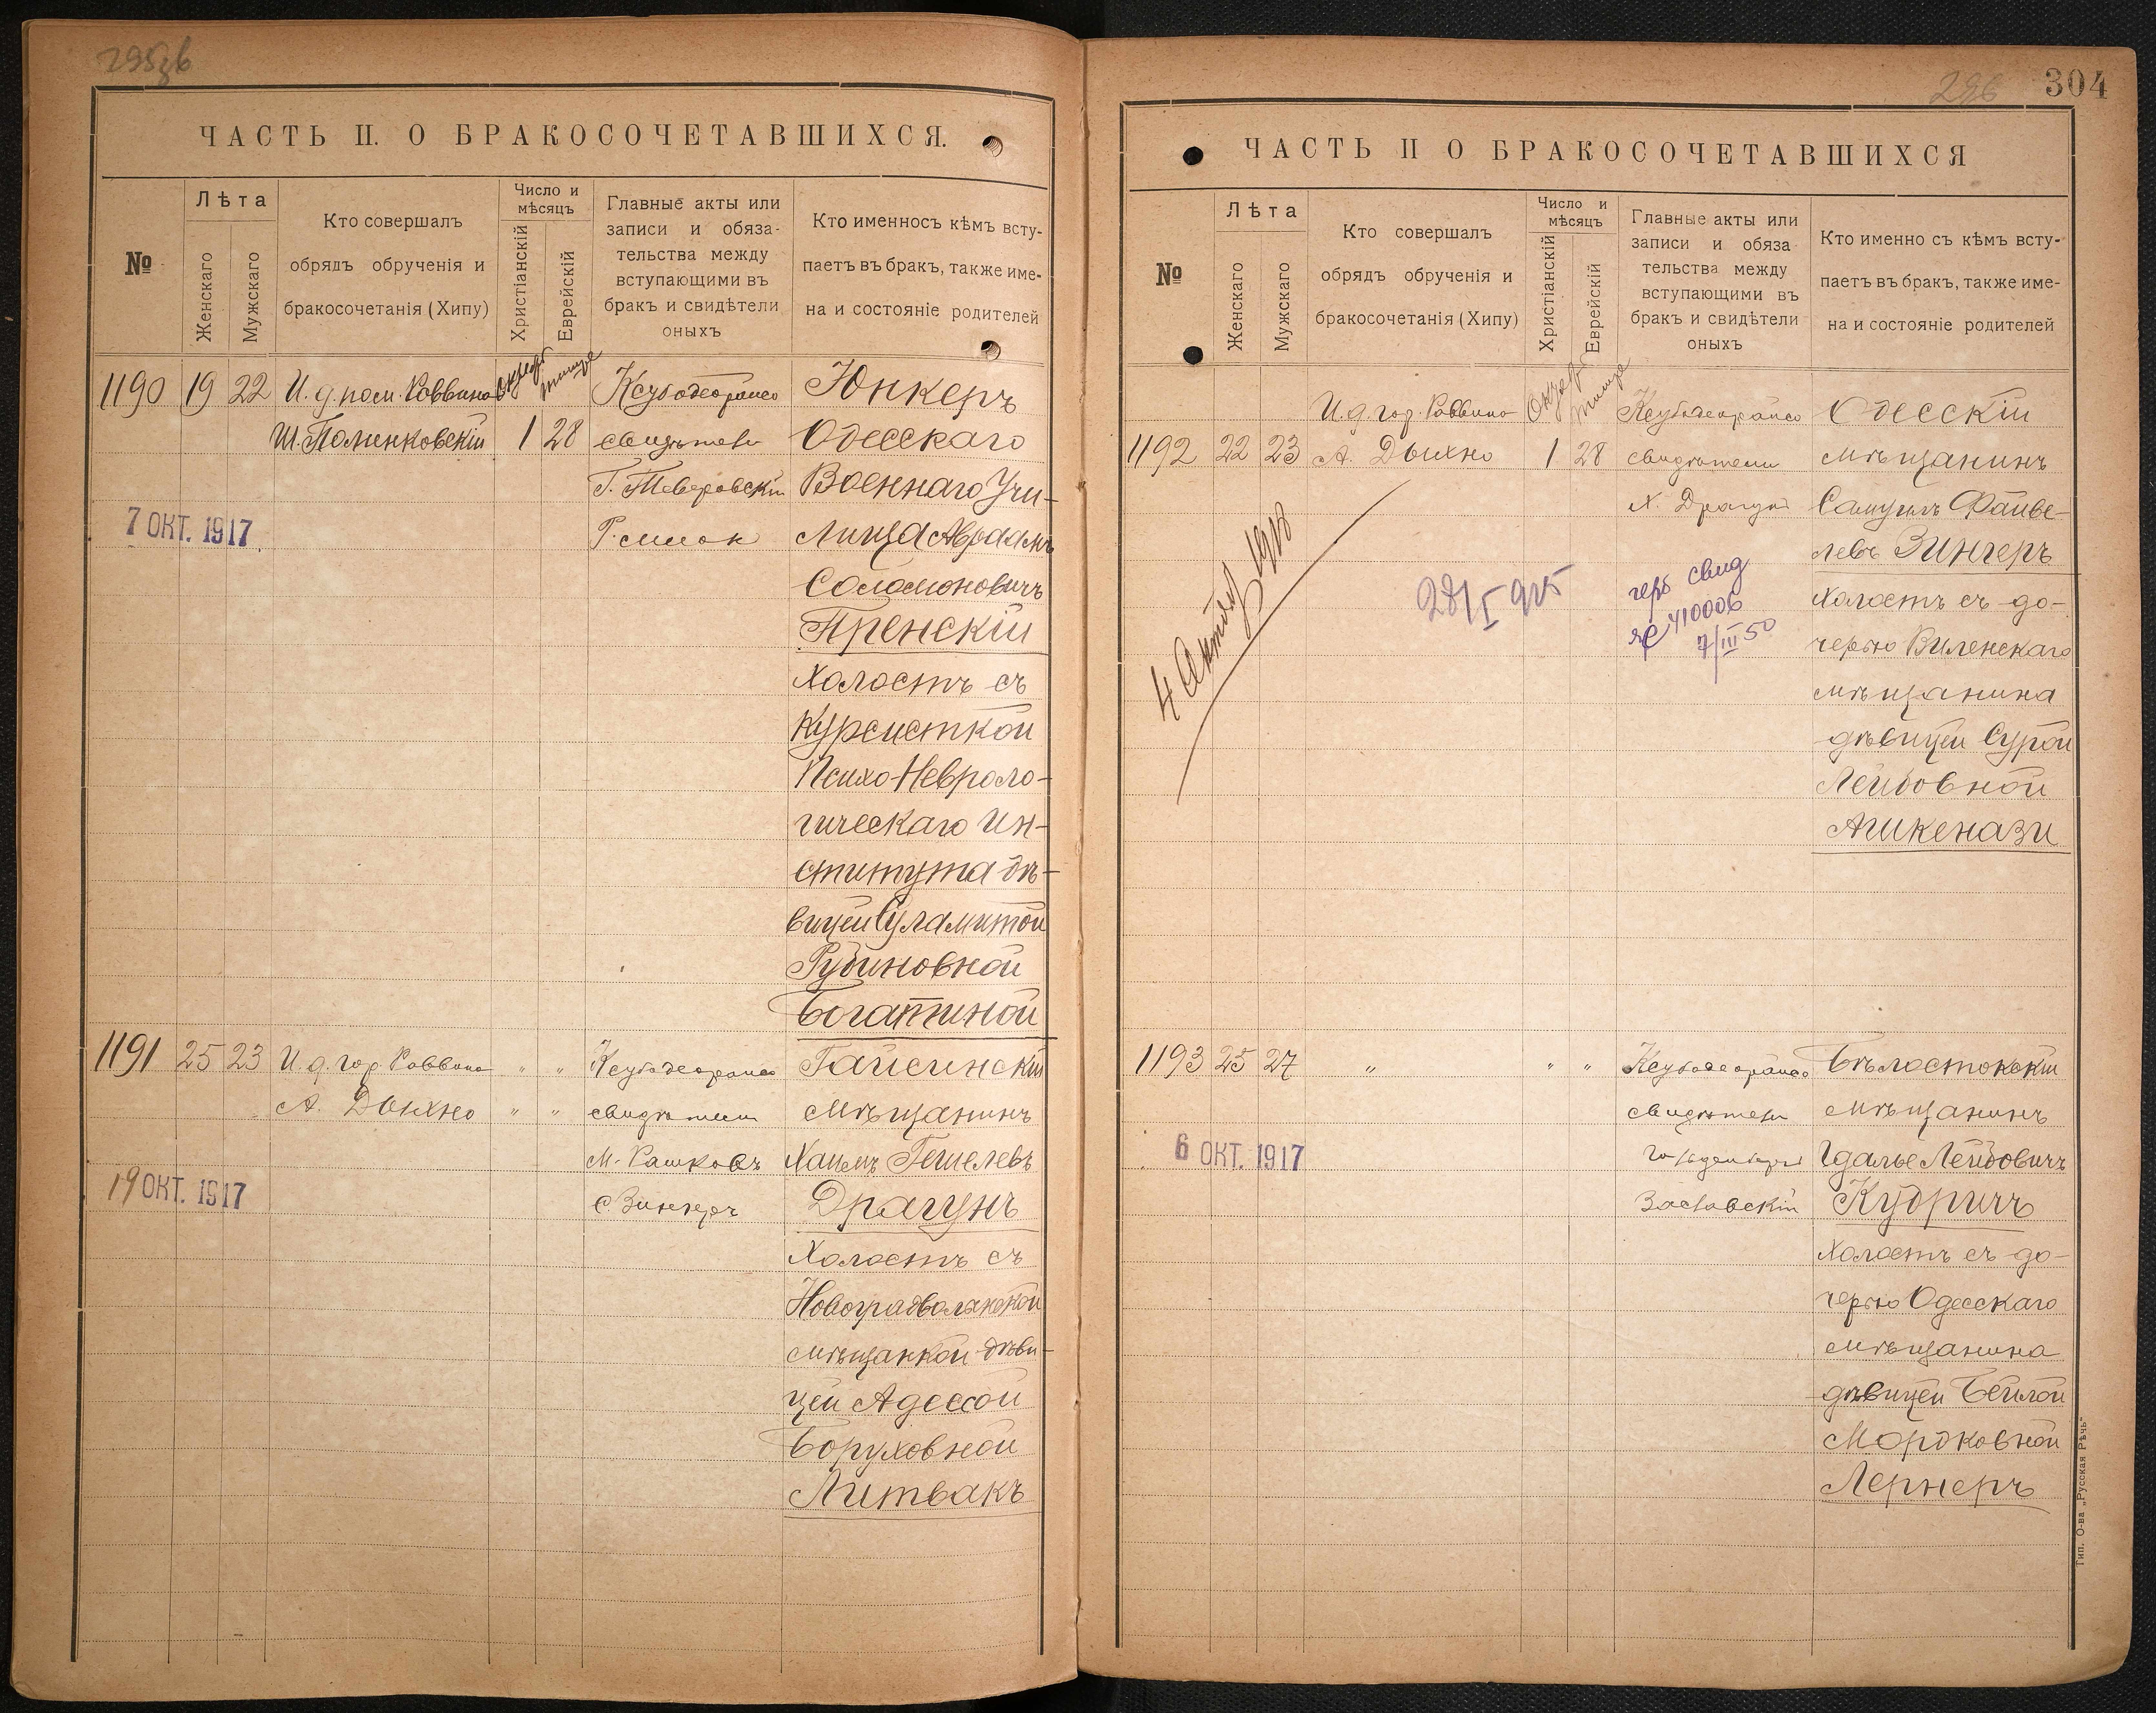 304
ЧАСТЬ II. О БРАКОСОЧЕТАВШИХСЯ.
№
Лѣта
Женскаго
Мужскаго
Кто совершалъ
обрядъ обрученія и
бракосочетанія (Хипу)
Число и
мѣсяцъ
Христіанскій
Еврейскій
Главные акты или
записи и обяза-
тельства между
вступающими въ
бракъ и свидѣтели
оныхъ
Кто именносъ кѣмъ всту-
паетъ въ бракъ, также име-
на и состояніе родителей
1190 19 22 И. д. пом. Раввина
Ш. Поменковскій 1 28
свидѣтели
Юнкеръ
Одесскаго
Военнаго Учи-
лища Абрамъ
Соломоновичъ
Пренскій
холостъ съ
курсисткой
Психо-Невроло-
гическаго Ин-
ститута дѣ-
вицей Суламитой
Рубиновной
Богатиной
7 ОКТ. 1917
1191 25 23 И. д. гор. Раввина " "
А. Дыхно " "
свидѣтели
М. Рашковъ
С. Зингеръ
Гайсинскій
мѣщанинъ
Хаимъ Гешелевъ
Драгунъ
холостъ съ
Новоградволынской
мѣщанкой дѣви-
цей Адессой
Боруховной
Литвакъ
19 ОКТ. 1917
ЧАСТЬ II О БРАКОСОЧЕТАВШИХСЯ
№
Лѣта
Женскаго
Мужскаго
Кто совершалъ
обрядъ обрученія и
бракосочетанія (Хипу)
Число и
мѣсяцъ
Христіанскій
Еврейскій
Главные акты или
записи и обяза
тельства между
вступающими въ
бракъ и свидѣтели
оныхъ
Кто именно съ кѣмъ всту-
паетъ въ бракъ, также име-
на и состояніе родителей
И. д. гор. Раввина
1192 22 23 А. Дыхно 1 28
свидѣтели
Х. Драгун
Одесскій
мѣщанинъ
Самуилъ Файве-
левъ Зингеръ
холостъ съ до-
черью Виленскаго
мѣщанина
дѣвицей Сурой
Лейбовной
Ашкенази
28/I 925
свид
410006
7/III 50
1193 25 27 " " "
свидѣтели
Заславскій
Бѣлостокскій
мѣщанинъ
Гдалье Лейбовичъ
Кубричъ
холостъ съ до-
черью Одесскаго
мѣщанина
дѣвицей Бейлой
Мордковной
Лернеръ
6 ОКТ. 1917
Тип. О-ва „Русская Рѣчь"